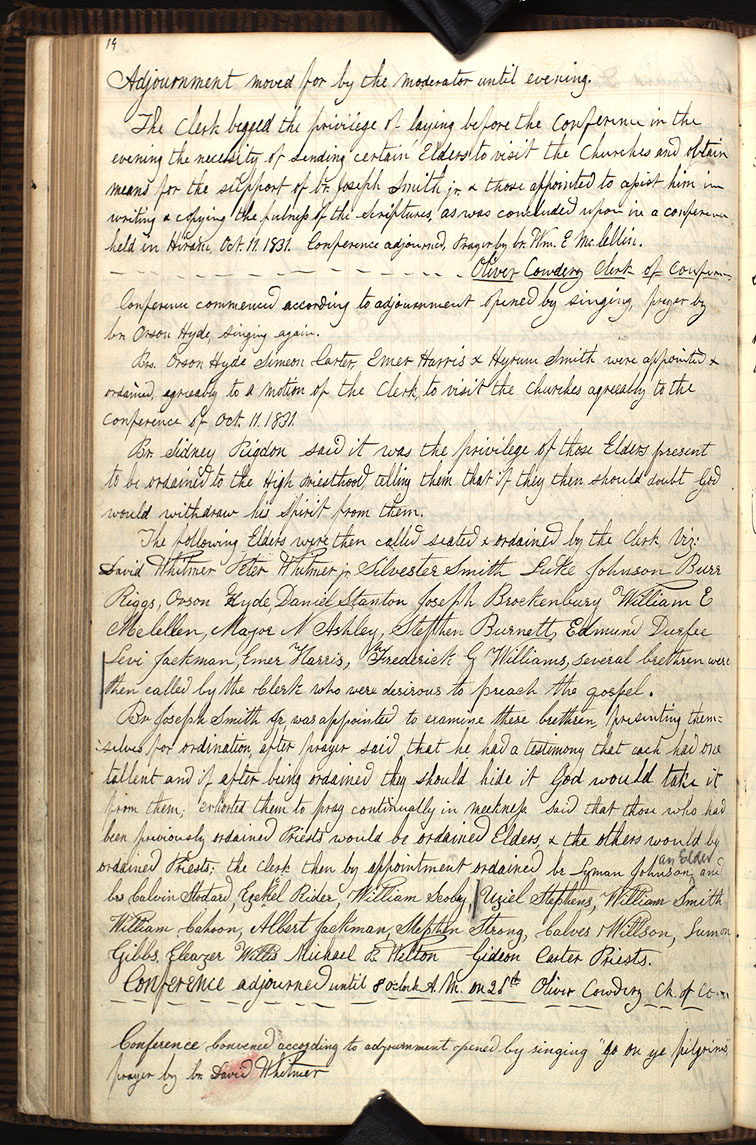 14
Adjournment moved for by the moderator until evening.
The Clerk begged the privilege of laying before the Conference in the
evening the necessity of sending certain Elders to visit the Churches and obtain
means for the support of br. Joseph Smith jr. & those appointed to assist him in
writing & copying the fulness of the scriptures, as was concluded upon in a conferen
held in Hiram, Oct. 11. 1831. Conference adjourned, Prayer by br. Wm. E Mclellin.
Oliver Cowdery Clerk of Conferen
Conference commenced according to adjournment opened by singing, prayer by
br. Orson Hyde, singing again.
Brs. Orson Hyde Simeon Carter, Emer Harris & Hyrum Smith were appointed &
ordained, agreeably to a motion of the Clerk, to visit the Churches agreeably to the
conference of Oct. 11. 1831.
Br. Sidney Rigdon said it was the privilege of those Elders present
to be ordained to the High Priesthood, telling them that if they then should doubt God
would withdraw his Spirit from them.
The following Elders were then called seated & ordained by the Clerk, Viz:
David Whitmer Peter Whitmer jr. Silvester Smith Luke Johnson Burr
Riggs, Orson Hyde, Daniel Stanton Joseph Brockenbury William E
Mclellen, Major N Ashley, Stephen Burnett, Edmund Durfee
Levi Jackman, Emer Harris, Frederick G Williams, several brethren were
then called by the Clerk who were desirous to preach the gospel.
Br. Joseph Smith Jr. was appointed to examine these brethren, presenting them=
:selves for ordination after prayer said, that he had a testimony that each had one
tallent and if after being ordained they should hide it God would take it
from them; exhorted them to pray continually in meekness said that those who had
been previously ordained Priests would be ordained Elders, & the others would by
ordained Priests; the Clerk then by appointment ordained br Lyman Johnson an Elder, and
brs Calvin Stodard, Ezekel Rider, William Scoby, Uziel Stephens, William Smith
William Cahoon, Albert Jackman, Stephen Strong, Calves Willson, Lumon
Gibbs, Eleazer Willis Michael B Welton Gideon Carter Priests.
Conference adjourned until 8 oclock A. M. on 26th Oliver Cowdery Ck. of Co
Conference Convened according to adjournment opened by singing "go on ye pilgrims"
prayer by br. David Whitmer